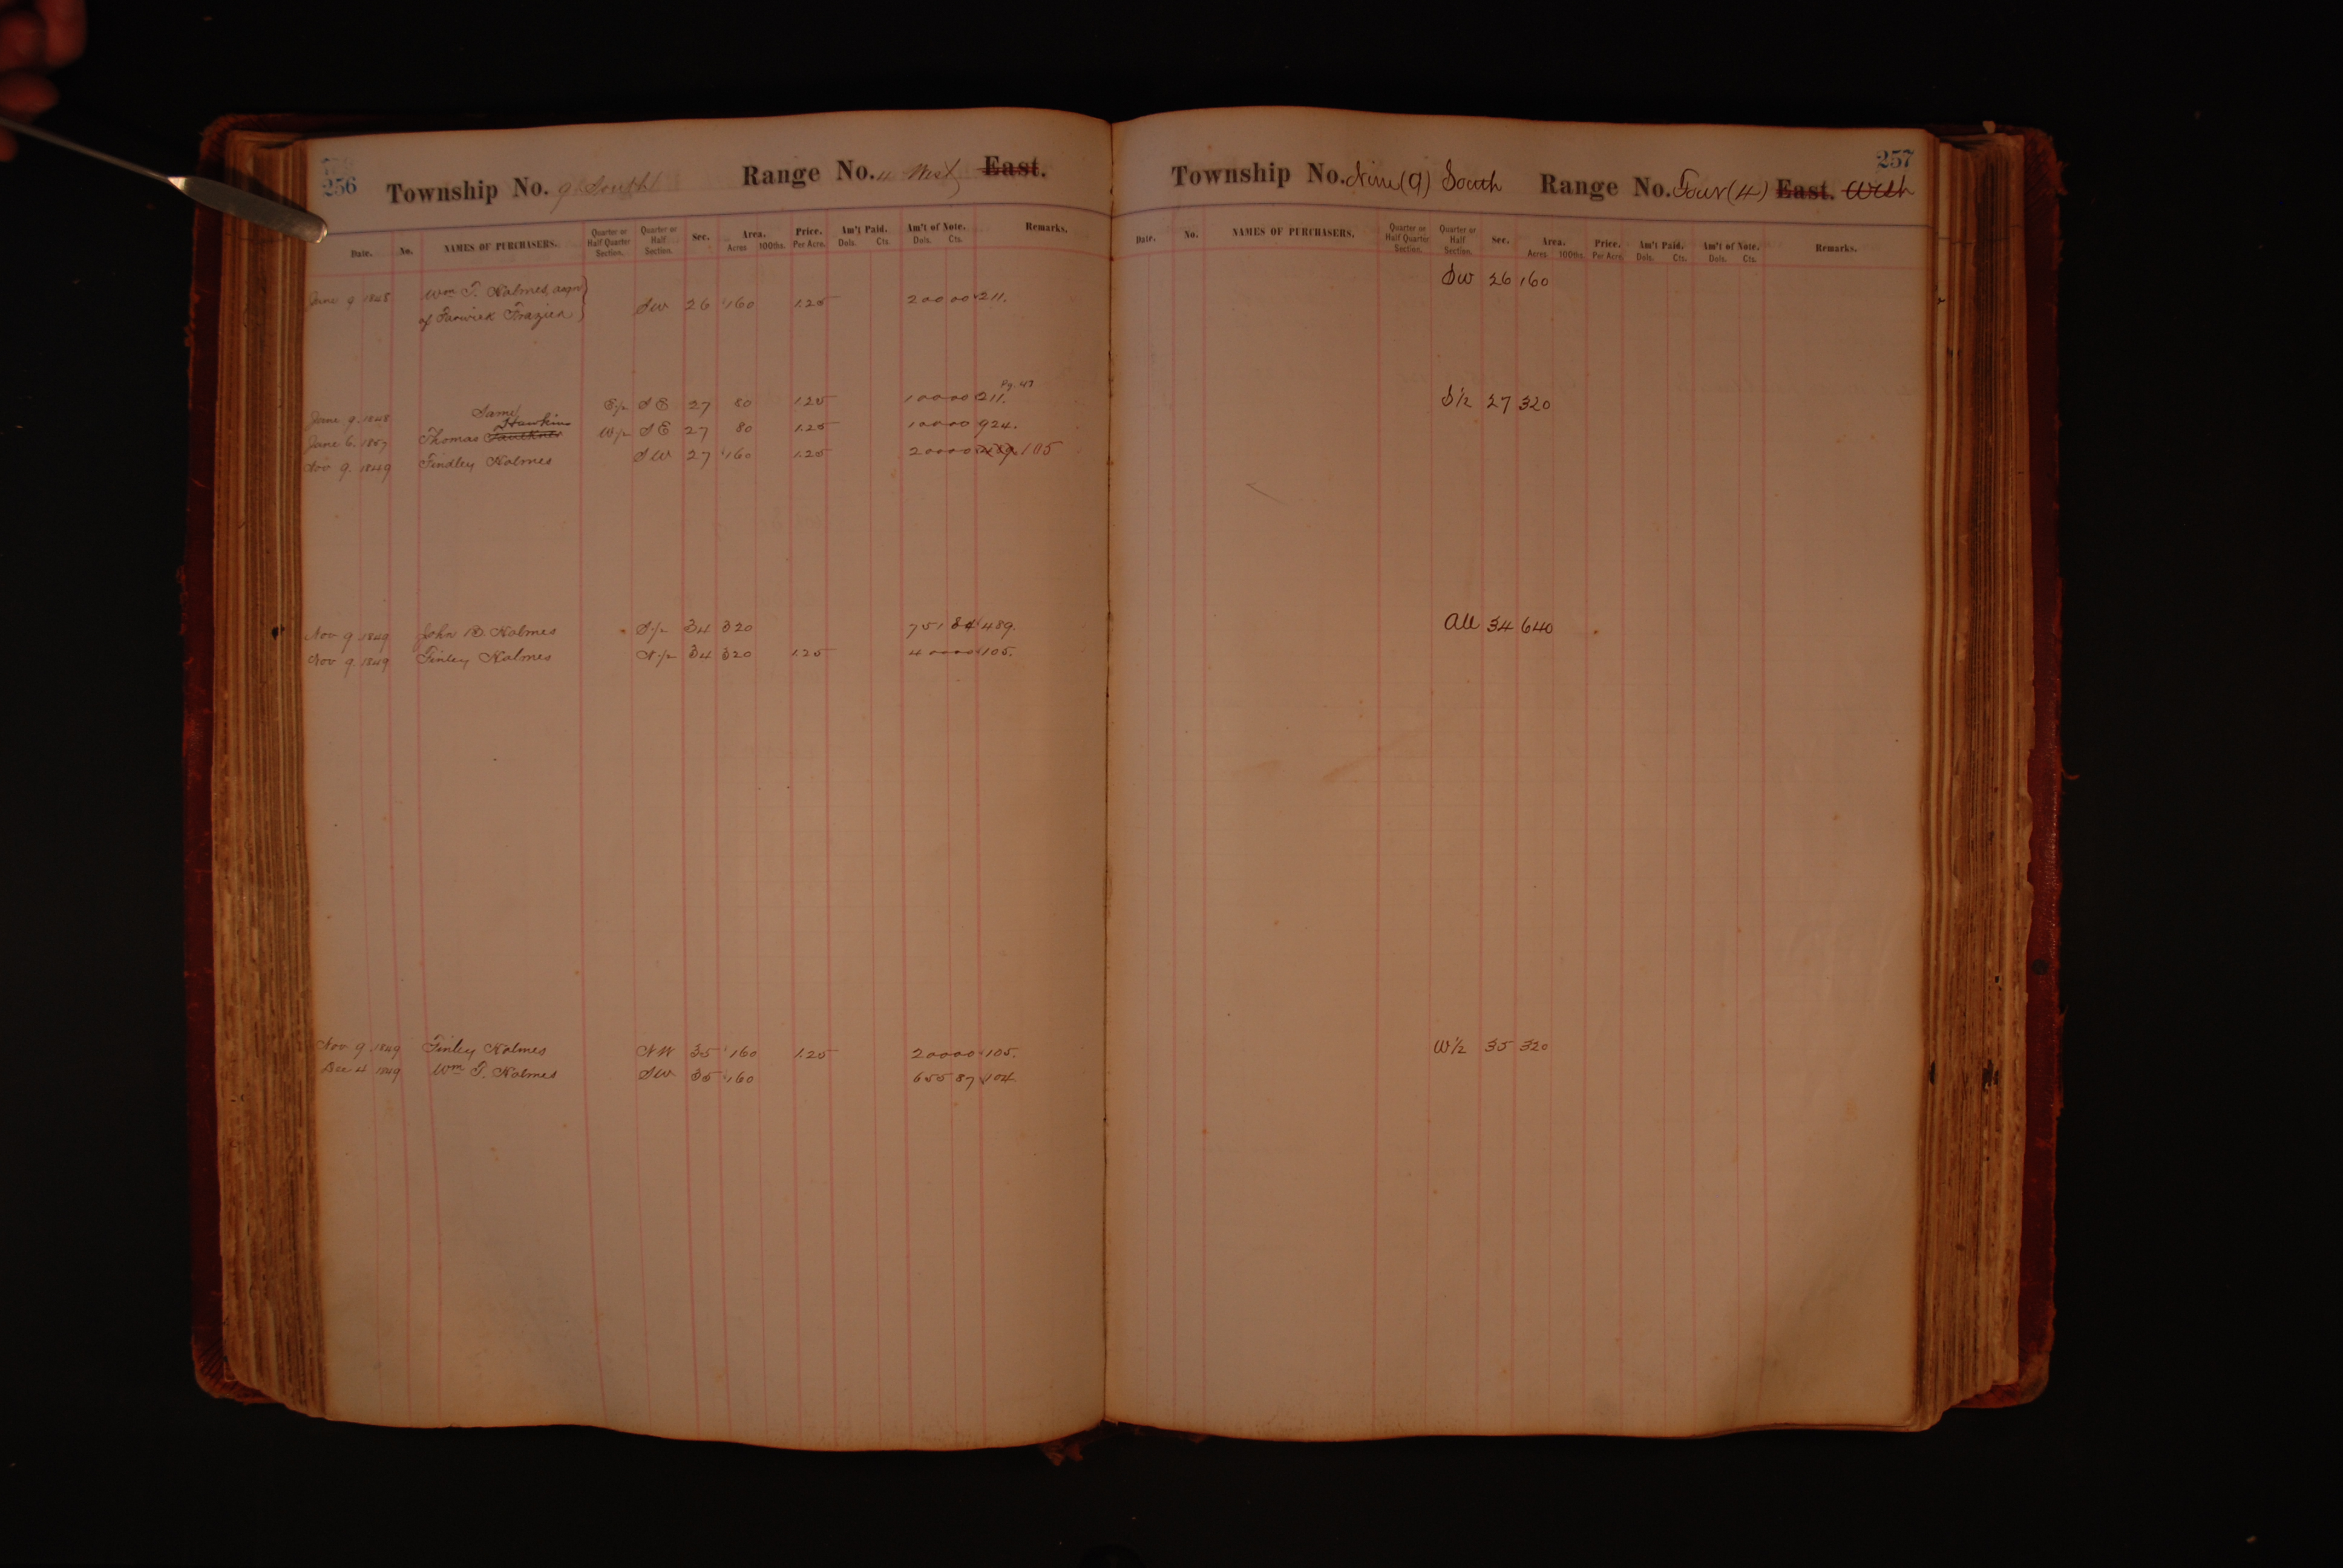 256
Township No. 9 South Range No. 4 West East.
Date. No. NAMES OF PURCHASERS. Quarter or Half Quarter Section. Quarter or Half Section. Sec. Area. Acres 100ths. Price. Per Acre. Am't Paid. Dols. Cts. Am't of Note. Dols. Cts. Remarks.
June 9 1848 Wm T. Holmes, asgn
of Farwick Frazier SW 26 160 1.25 200 00 211.
Pg. 47
June 9 1848 Same E/2 SE 27 80 1.25 100 00 211.
Hawkins
June 6. 1857 Thomas Faulkner W/2 SE 27 80 1.25 100 00 924.
Nov 9. 1849 Findley Holmes SW 27 160 1.25 200 00 489. 105
Nov 9 1849 John B. Holmes S/2 34 320 751 84 489.
Nov 9. 1849 Finley Holmes N/2 34 320 1.25 400 00 105.
Nov 9 1849 Finley Holmes NW 35 160 1.25 200 00 105.
Dec 4 1849 Wm T. Holmes SW 35 160 655 87 104.
257
Township No. Nine (9) South Range No. Four (4) East. West
Date. No. NAMES OF PURCHASERS. Quarter or Half Quarter Section. Quarter or Half Section. Sec. Area. Acres 100ths. Price. Per Acre. Am't Paid. Dols. Cts. Am't of Note. Dols. Cts. Remarks.
SW 26 160
S1/2 27 320
All 34 640
W1/2 35 320